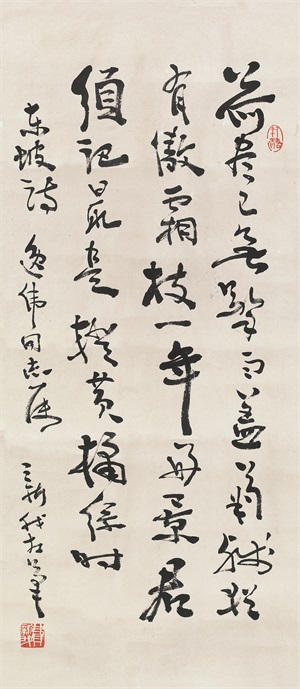 荷尽已无擎雨盖菊残犹
有傲霜枝一年好景君
须记最是橙黄橘绿时
东坡诗 逸伟同志属